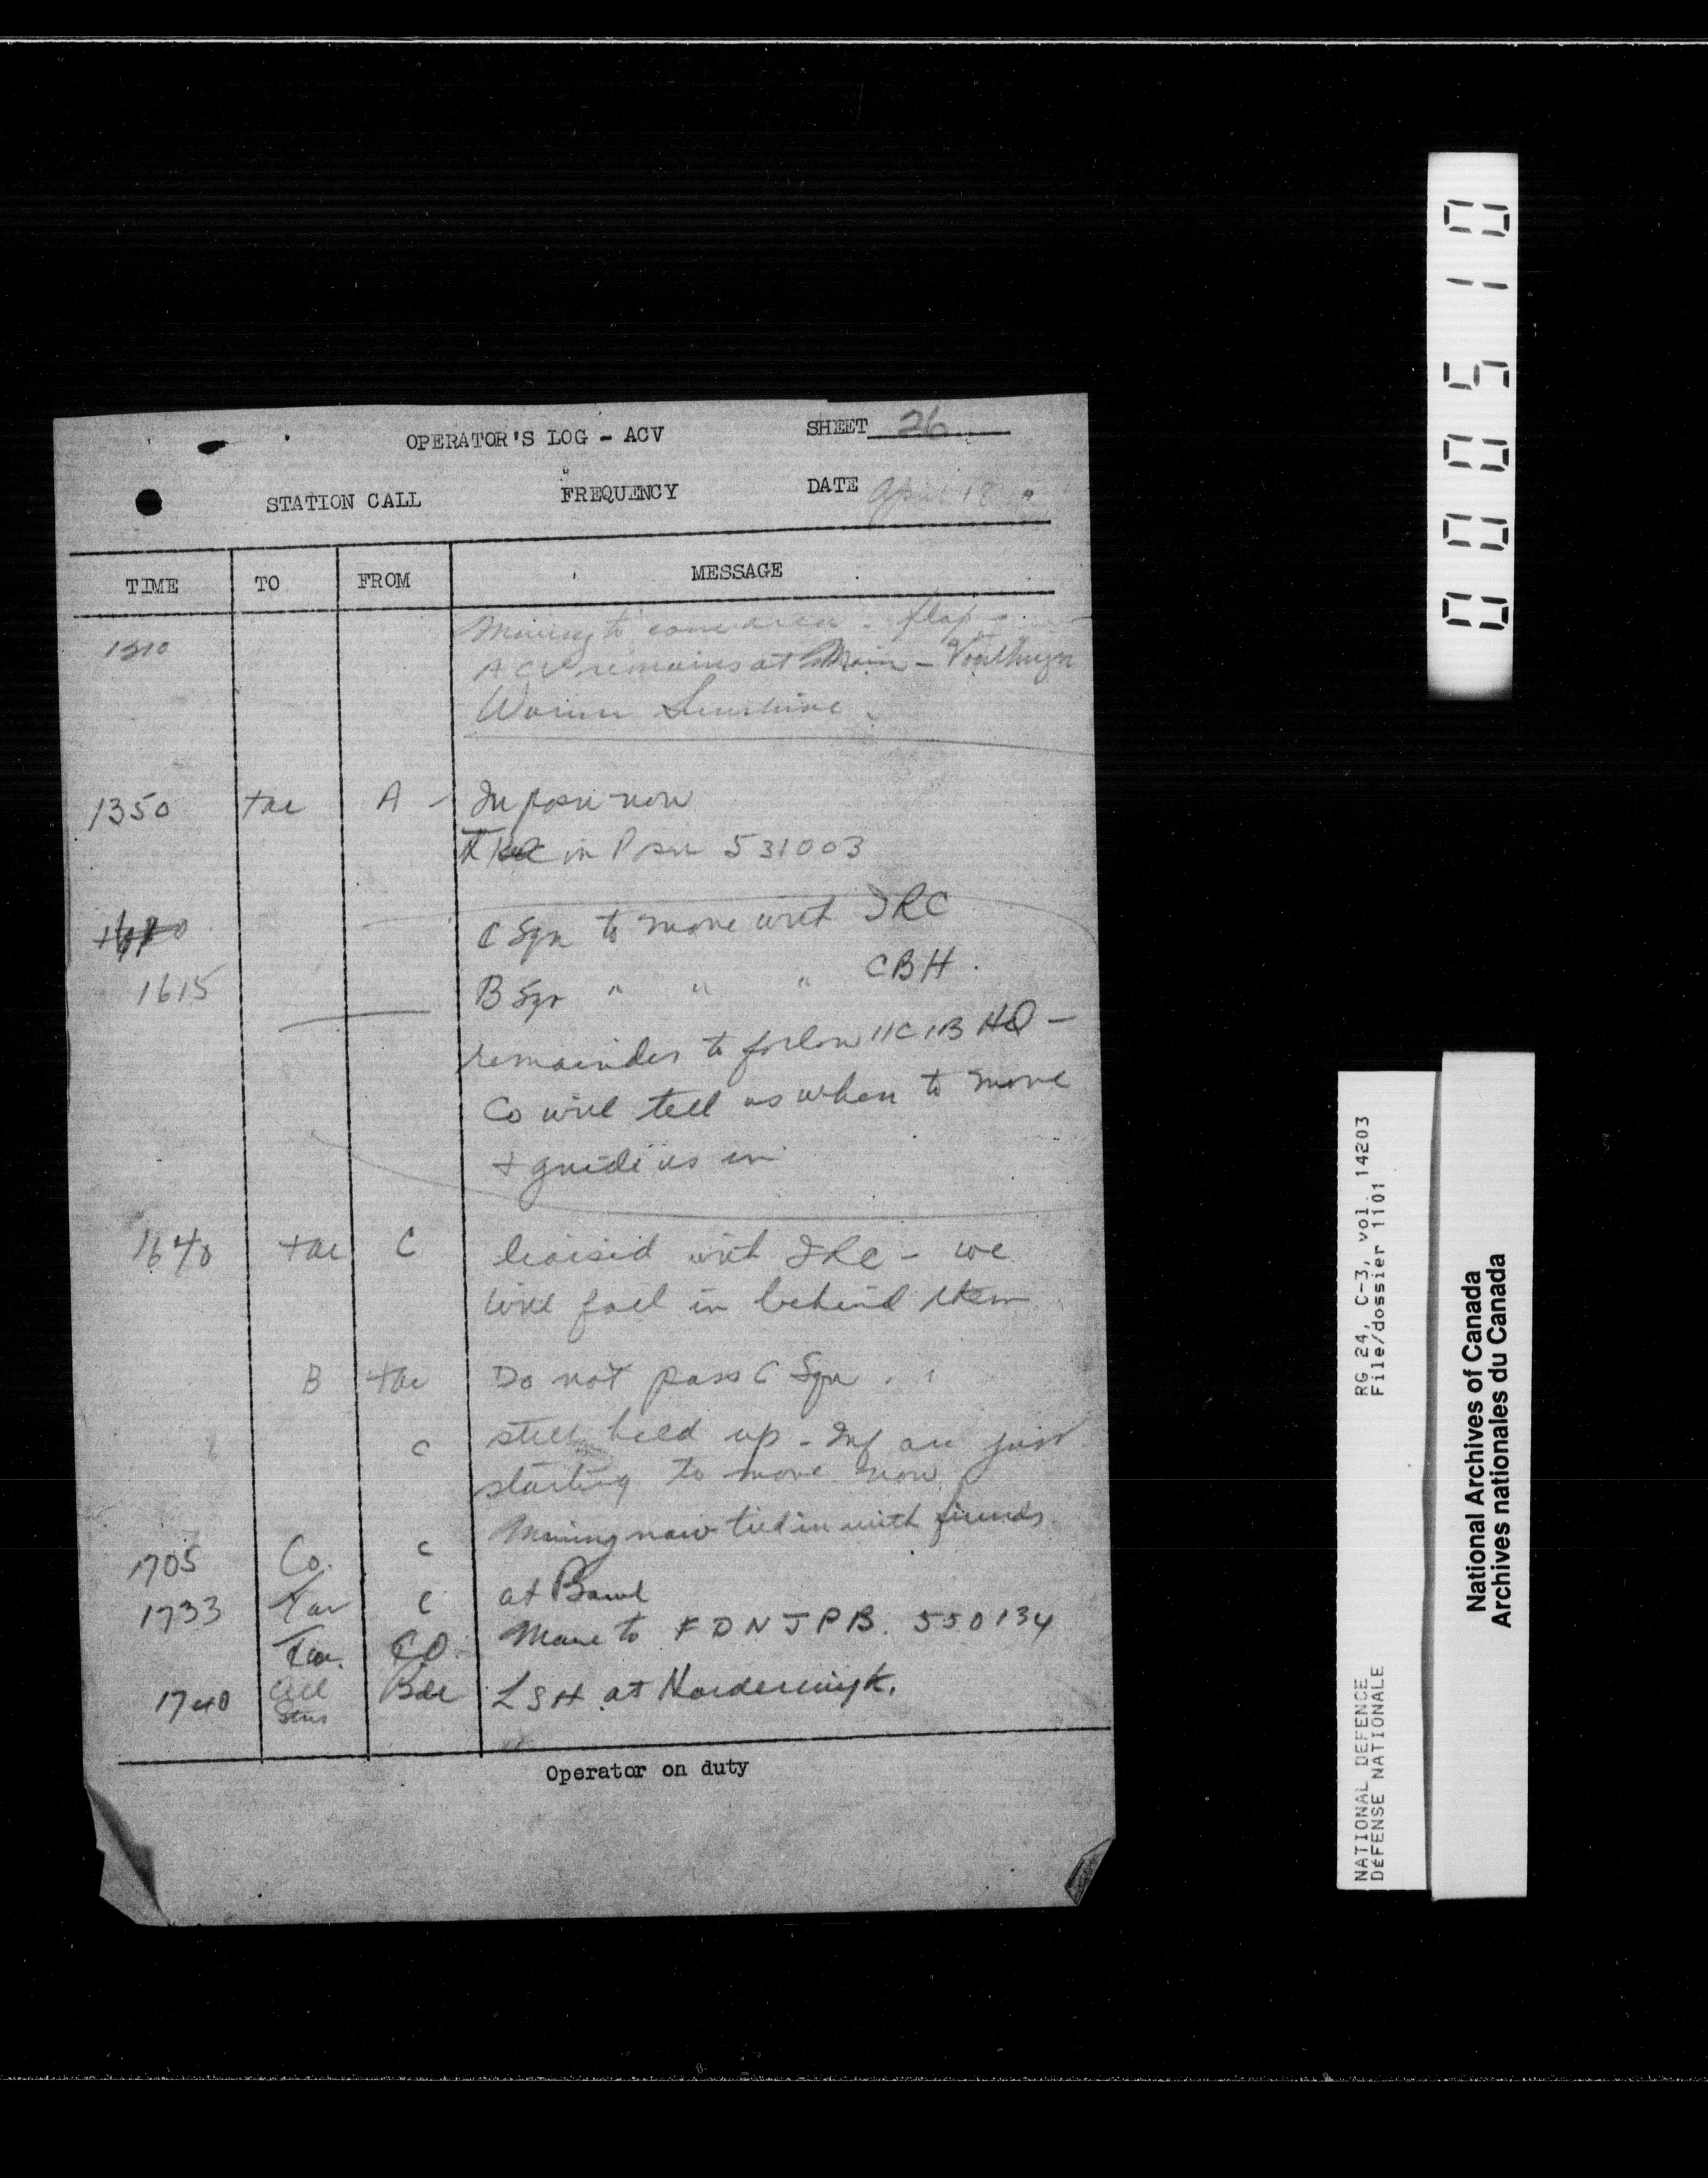 OPERATOR'S LOG - ACV SHEET 26
STATION CALL FREQUENCY DATE April 18
TIME TO FROM MESSAGE
1310 Moving to conc area . flap
ACV remains at Main -
Warm Sunshine
1350 tac A - In posn now
Tac in Posn 531003
C Sqn to move with IRC
1615 B Sqn " " " CBH
remainder to follow 11 CIB HQ -
Co will tell us when to move
+ guide us in
1640 tac C liaised with IRC - we
will fall in behind them
B tac Do not pass C Sqn .
C still held up - Inf are just
starting to move now
1705 Co. C Moving now tied in with friends.
1733 Tac C at
Tac CO. Move to FDNJPB. 550134
1740 All Stns Bde LSH at
Operator on duty
000510
RG 24, C-3, vol. 14203
File/dossier 1101
NATIONAL DEFENCE
DÉFENSE NATIONALE
National Archives of Canada
Archives nationales du Canada